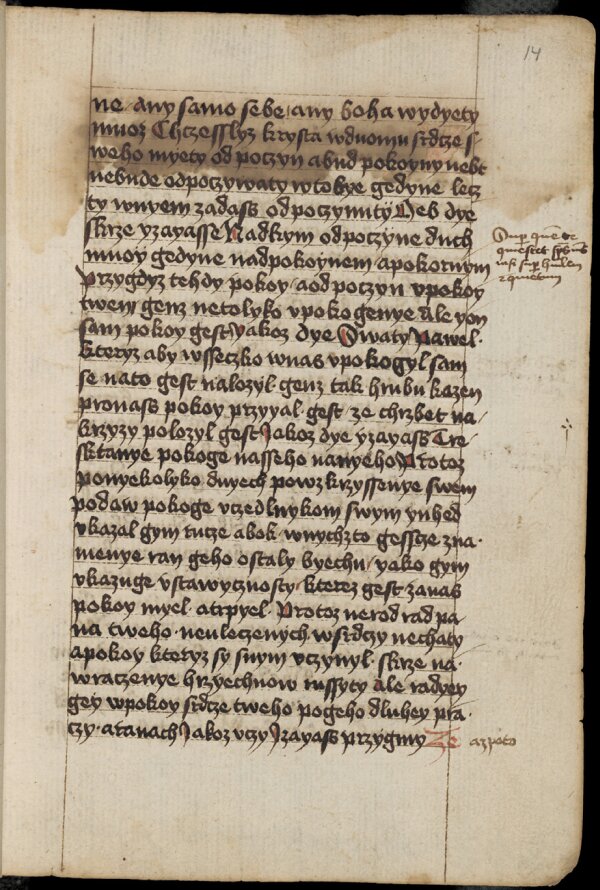 14
ne any samo sebe any boha wydyety
muoz Chczessly krysta wduomu srdcze s
weho myety od poczyn abud pokoyny nebt
nebude odpoczywaty wtobye gedyne lecz
ty wnyem zadass odpoczynuty Neb dye
skrze yzayasse Nadkym odpoczyne duch
muoy gedyne nadpokoynem apokornym
Przygdyz tehdy pokoy aodpoczyn vpokoy
twem genz netolyko vpokogenye Ale yon
sam pokoy gest yakoz dye Swaty Pawel
kteryz aby wsseczko wnas vpokogyl sam
se nato gest nalozyl genz tak hrubu kazen
pronass pokoy przyyal gest ze chrzbet na
krzyzy polozyl gest Jakoz dye yzayass Tre
sktanye pokoge nasseho nanyeho Protoz
ponyekolyko dnyech powzkrzyssenye swem
podaw pokoge vczedlnykom swym ynhed
vkazal gym rucze abok wnychzto gesscze zna
menye ran geho ostaly byechu yako gym
vkazuge vstawycznosty kterez gest zanas
pokoy myel atrpyel Protoz nerod rad pa
na tweho neuleczenych wsrdczy nechaty
apokoy kteryz sy snym vczynyl skrze na
wraczenye hrzyechuow russyty Ale radyey
gey wpokoy srdcze tweho pogeho dluhey pra
czy aranach Jakoz vczy Jzayass przygmy Ze azpoto